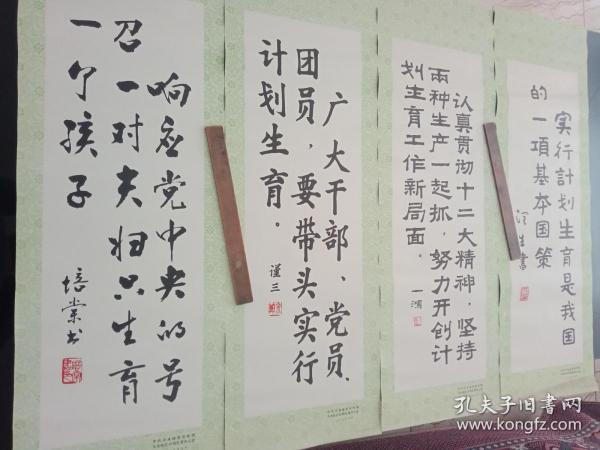 实行計划生育是我国
的一項基本国策
认真贯彻十二大精神，坚持
兩种生产一起抓，努力开创计
划生育工作新局面。
一鸿
广大干部、党员、
团员，要带头实行
计划生育。
谨三
响应党中央的号
召一对夫妇只生育
一个孩子
培棠书
孔夫子旧书网
www.kongfz.com